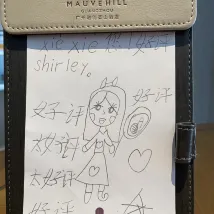 MAUVEHILL
xie xie 你 好评
shirley。
好评 好评
太好评
太好评
好评